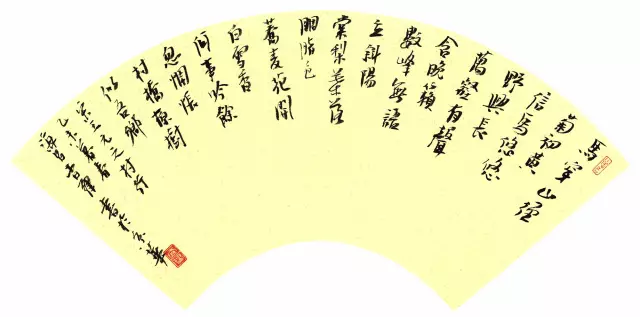 馬穿山徑
菊初黃
信馬悠悠
野興長
萬壑有聲
含晚籟
數峰無語
立斜陽
棠梨葉落
胭脂色
蕎麥花開
白雪香
何事吟餘
忽惆悵
村橋原樹
似吾鄉
宋王元之村行
乙未暮春
書於京華